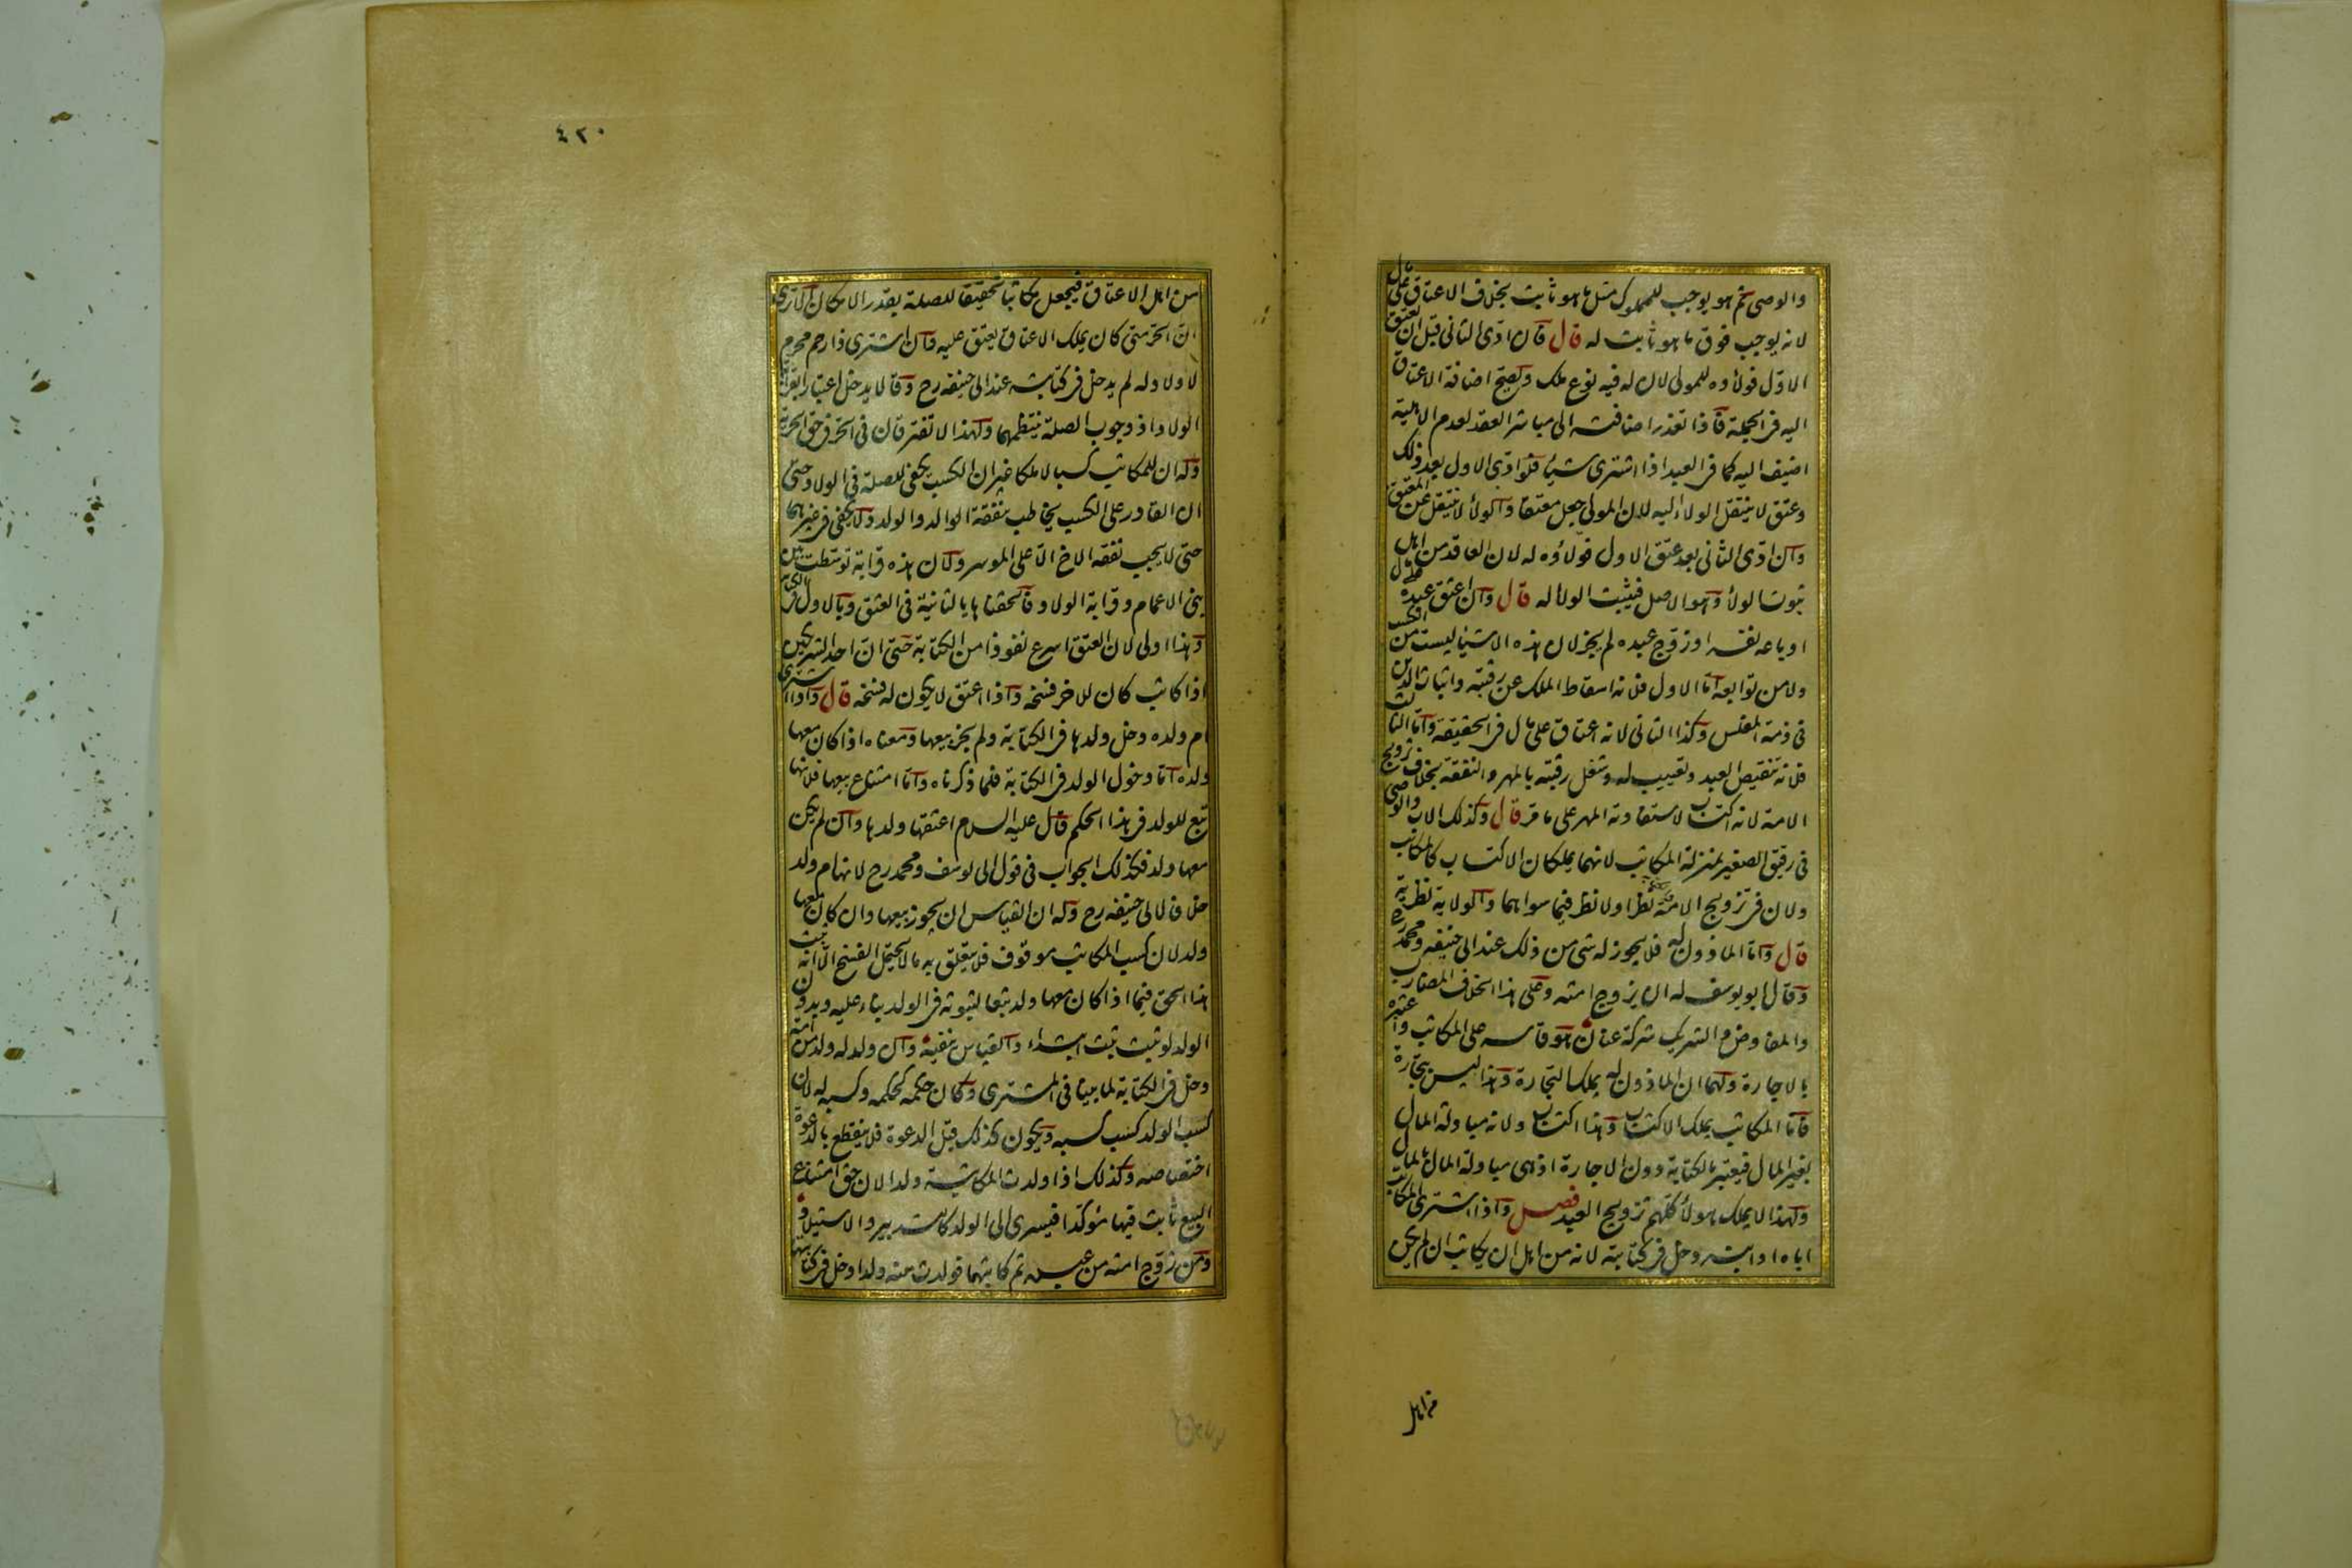 والوصي ثم هو يوجب للمملوك مثل ما هو ثابت بخلاف الاعتاق على مال
لانه يوجب فوق ما هو ثابت له قال فان ادى الثاني قبل ان يعتق
الاول فولاؤه للمولى لان له فيه نوع ملك ويصح اضافة الاعتاق
اليه في الجملة فاذا تعذر اضافته الى مباشر العقد لعدم الاهلية
اضيف اليه كما في العبد اذا اشترى شيئا فلو ادى الاول بعد ذلك
وعتق لا ينتقل الولاء اليه لان المولى جعل معتقا والولاء لا ينتقل عن المعتق
وان ادى الثاني بعد عتق الاول فولاؤه له لان العاقد من اهل
ثبوت الولاء وهو الاصل فيثبت الولاء له قال وان اعتق عبده على مال
او باعه نفسه او زوج عبده لم يجز لان هذه الاشياء ليست من الكسب
ولا من توابعه اما الاول فلانه اسقاط الملك عن رقبته واثبات الدين
في ذمة المفلس وكذا الثاني لانه اعتاق على مال في الحقيقة واما الثالث
فلانه تنقيص العبد وتعييب له وشغل رقبته بالمهر والنفقة بخلاف تزويج
الامة لانه اكتساب لاستفادته المهر على ما مر قال وكذلك الاب والوصي
في رقيق الصغير بمنزلة المكاتب لانهما يملكان الاكتساب كالمكاتب
ولان في تزويج الامة نظرا ولا نظر فيما سواهما والولاية نظرية
قال واما الماذون له فلا يجوز له شي من ذلك عند ابي حنيفه ومحمد رح
وقال ابو يوسف له ان يزوج امته وعلى هذا الخلاف المضارب
والمفاوض والشريك شركة عنان هو قاسه على المكاتب واعتبره
بالاجارة ولهما ان الماذون له يملك التجارة وهذا ليس بتجارة
فاما المكاتب يملك الاكتساب وهذا اكتساب ولانه مبادلة المال
بغير المال فيعتبر بالكتابة دون الاجارة اذ هي مبادلة المال بالمال
ولهذا لا يملك هولاء كلهم تزويج العبد فصل واذا اشترى المكاتب
اباه او ابنه دخل في كتابته لانه من اهل ان يكاتب ان لم يكن
من اهل
٤٢٠
من اهل الاعتاق فيجعل مكاتبا تحقيقا للصلة بقدر الامكان الا ترى
ان الحر متى كان يملك الاعتاق يعتق عليه وان اشترى ذا رحم محرم
لا ولاد له لم يدخل في كتابته عند ابي حنيفه رح وقالا يدخل اعتبارا بقرابة
الولاد اذ وجوب الصلة ينتظمهما ولهذا لا تفترقان في الحر في حق الحرية
وله ان للمكاتب كسبا لا ملكا غير ان الكسب يكفي للصلة في الولاد حتى
ان القادر على الكسب يخاطب بنفقة الوالد والولد ولا يكفي في غيرهما
حتى لا يجب نفقة الاخ الا على الموسر ولان هذه قرابة توسطت بين
بني الاعمام وقرابة الولاد فالحقناها بالثانية في العتق وبالاول في الكتابة
وهذا اولى لان العتق اسرع نفوذا من الكتابة حتى ان احد الشريكين
اذا كاتب كان للاخر فسخه واذا اعتق لا يكون له فسخه قال واذا اشترى
ام ولده دخل ولدها في الكتابة ولم يجز بيعها ومعناه اذا كان معها
ولده اما دخول الولد في الكتابة فلما ذكرناه واما امتناع بيعها فلانها
تبع للولد في هذا الحكم قال عليه السلام اعتقها ولدها وان لم يكن
معها ولد فكذلك الجواب في قول ابي يوسف ومحمد رح لانها ام ولد
خلافا لابي حنيفه رح وله ان القياس ان يجوز بيعها وان كان معها
ولد لان كسب المكاتب موقوف فلا يتعلق به ما لا يحتمل الفسخ الا انه يثبت
هذا الحق فيما اذا كان معها ولد تبعا لثبوته في الولد بناء عليه وبدون
الولد لو ثبت ثبت ابتداء والقياس ينفيه وان ولد له ولد من امته
دخل في الكتابة لما بينا في المشترى وكان حكمه كحكمه وكسبه له لان
كسب الولد كسب كسبه ويكون كذلك قبل الدعوة فلا ينقطع بالدعوة
اختصاصه وكذلك اذا ولدت المكاتبة ولدا لان حق امتناع
البيع ثابت فيها مؤكدا فيسري الى الولد كالتدبير والاستيلاد
ومن زوج امته من عبده ثم كاتبهما فولدت منه ولدا دخل في كتابتها